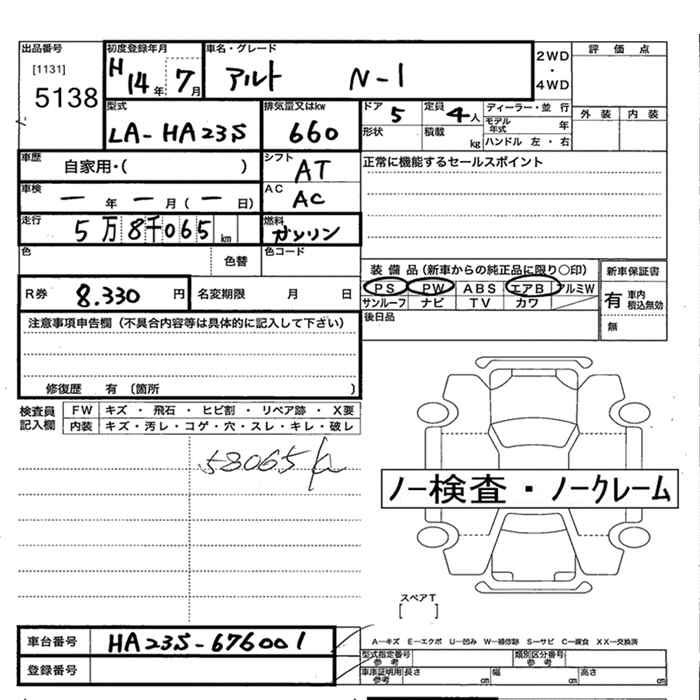 出品番号
[1131]
5138
初度登録年月
H14年7月
車名・グレード
アルト N-1
2WD
・
4WD
評価点
外装 内装
型式
LA-HA23S
排気量又はkw
660
ドア 5
定員 4人
形状
積載 kg
ディーラー・並行
モデル年式 年
ハンドル 左・右
車歴
自家用・( )
シフト
AT
正常に機能するセールスポイント
車検
ー年ー月(ー日)
AC
AC
走行
5万8千065km
燃料
ガソリン
色
色替
色コード
装備品(新車からの純正品に限り○印)
PS PW ABS エアB アルミW
サンルーフ ナビ TV カワ
新車保証書
有 車内積込無効
無
後日品
R券 8.330円
名変期限 月 日
注意事項申告欄(不具合内容等は具体的に記入して下さい)
修復歴 有 (箇所 )
検査員記入欄
FW キズ・飛石・ヒビ割・リペア跡・X要
内装 キズ・汚レ・コゲ・穴・スレ・キレ・破レ
58065
ノー検査・ノークレーム
スペアT
[ ]
車台番号 HA23S-676001
登録番号
A-キズ E-エクボ U-凹み W-補修跡 S-サビ C-腐食 XX-交換済
型式指定番号 参考
類別区分番号 参考
車庫証明用 参考 長さ cm 幅 cm 高さ cm